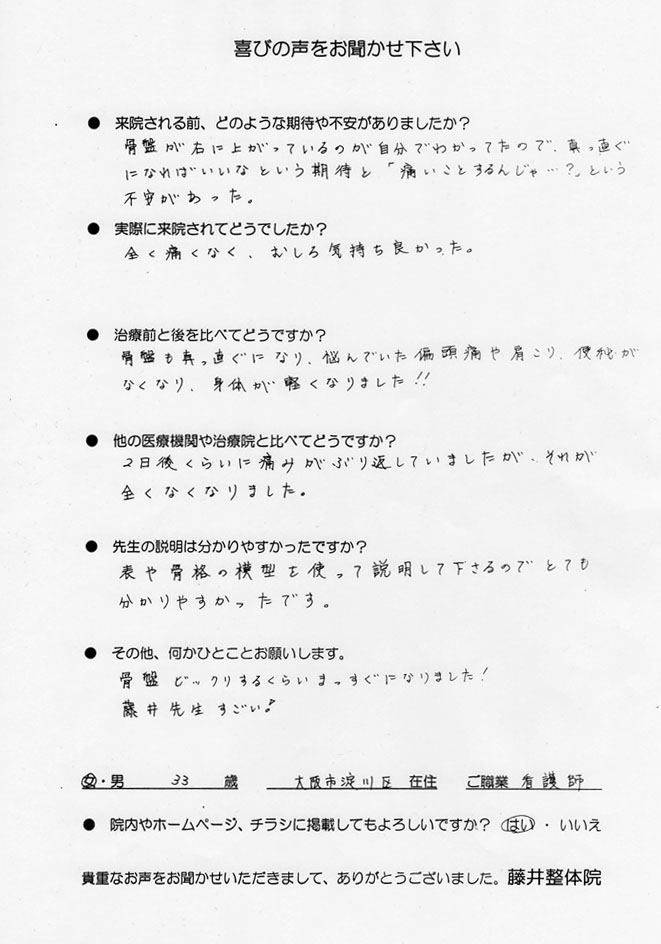 喜びの声をお聞かせ下さい
● 来院される前、どのような期待や不安がありましたか?
骨盤が右に上がっているのが自分でわかってたので、真っ直ぐ
になればいいなという期待と「痛いことするんじゃ…?」という
不安があった。
● 実際に来院されてどうでしたか?
全く痛くなく、むしろ気持ち良かった。
● 治療前と後を比べてどうですか?
骨盤も真っ直ぐになり、悩んでいた偏頭痛や肩こり、便秘が
なくなり、身体が軽くなりました!!
● 他の医療機関や治療院と比べてどうですか?
2日後くらいに痛みがぶり返していましたが、それが
全くなくなりました。
● 先生の説明は分かりやすかったですか?
表や骨格の模型を使って説明して下さるのでとても
分かりやすかったです。
● その他、何かひとことお願いします。
骨盤ビックリするくらいまっすぐになりました!
藤井先生すごい!
女・男 33 歳 大阪市淀川区 在住 ご職業 看護師
● 院内やホームページ、チラシに掲載してもよろしいですか? はい・いいえ
貴重なお声をお聞かせいただきまして、ありがとうございました。藤井整体院